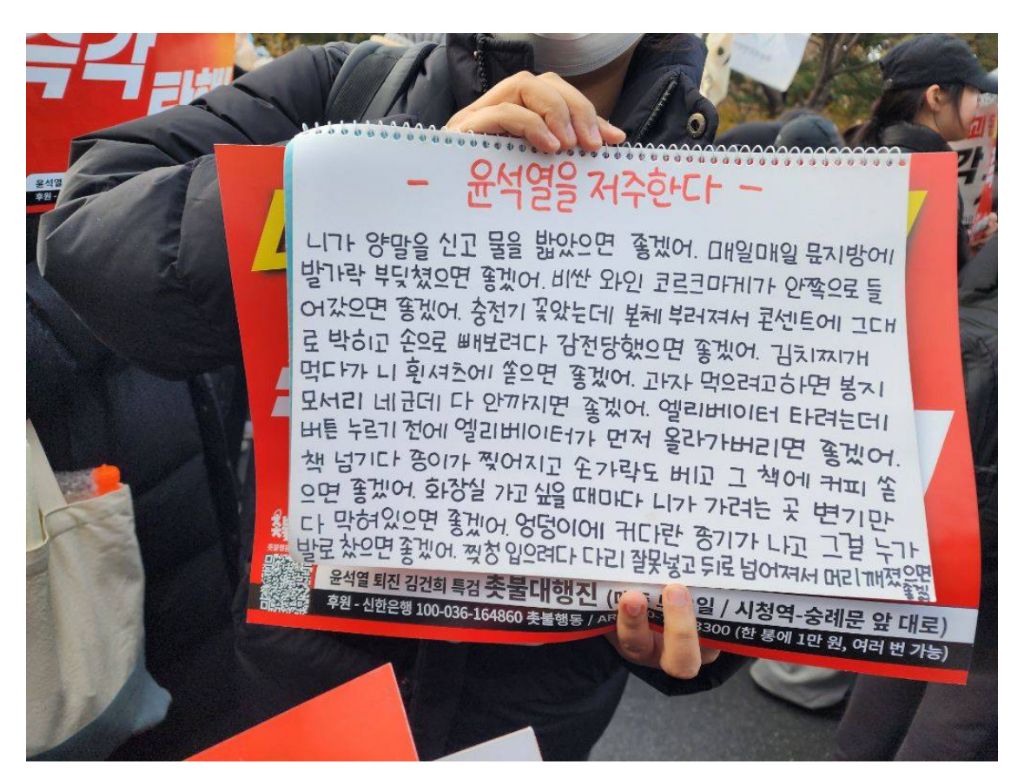 즉각
탄핵
윤석열
후원
- 윤석열을 저주한다 -
니가 양말을 신고 물을 밟았으면 좋겠어. 매일매일 문지방에
발가락 부딪쳤으면 좋겠어. 비싼 와인 코르크마게가 안쪽으로 들
어갔으면 좋겠어. 충전기 꽂았는데 본체 부러져서 콘센트에 그대
로 박히고 손으로 빼보려다 감전당했으면 좋겠어. 김치찌개
먹다가 니 흰셔츠에 쏟으면 좋겠어. 과자 먹으려고하면 봉지
모서리 네군데 다 안까지면 좋겠어. 엘리베이터 타려는데
버튼 누르기 전에 엘리베이터가 먼저 올라가버리면 좋겠어.
책 넘기다 종이가 찢어지고 손가락도 베고 그 책에 커피 쏟
으면 좋겠어. 화장실 가고 싶을 때마다 니가 가려는 곳 변기만
다 막혀있으면 좋겠어. 엉덩이에 커다란 종기가 나고 그걸 누가
발로 찼으면 좋겠어. 찢청 입으려다 다리 잘못넣고 뒤로 넘어져서 머리 깨졌으면
좋겠어
윤석열 퇴진 김건희 특검 촛불대행진 일 / 시청역-숭례문 앞 대로)
후원 - 신한은행 100-036-164860 촛불행동 / 3300 (한 통에 1만 원, 여러 번 가능)